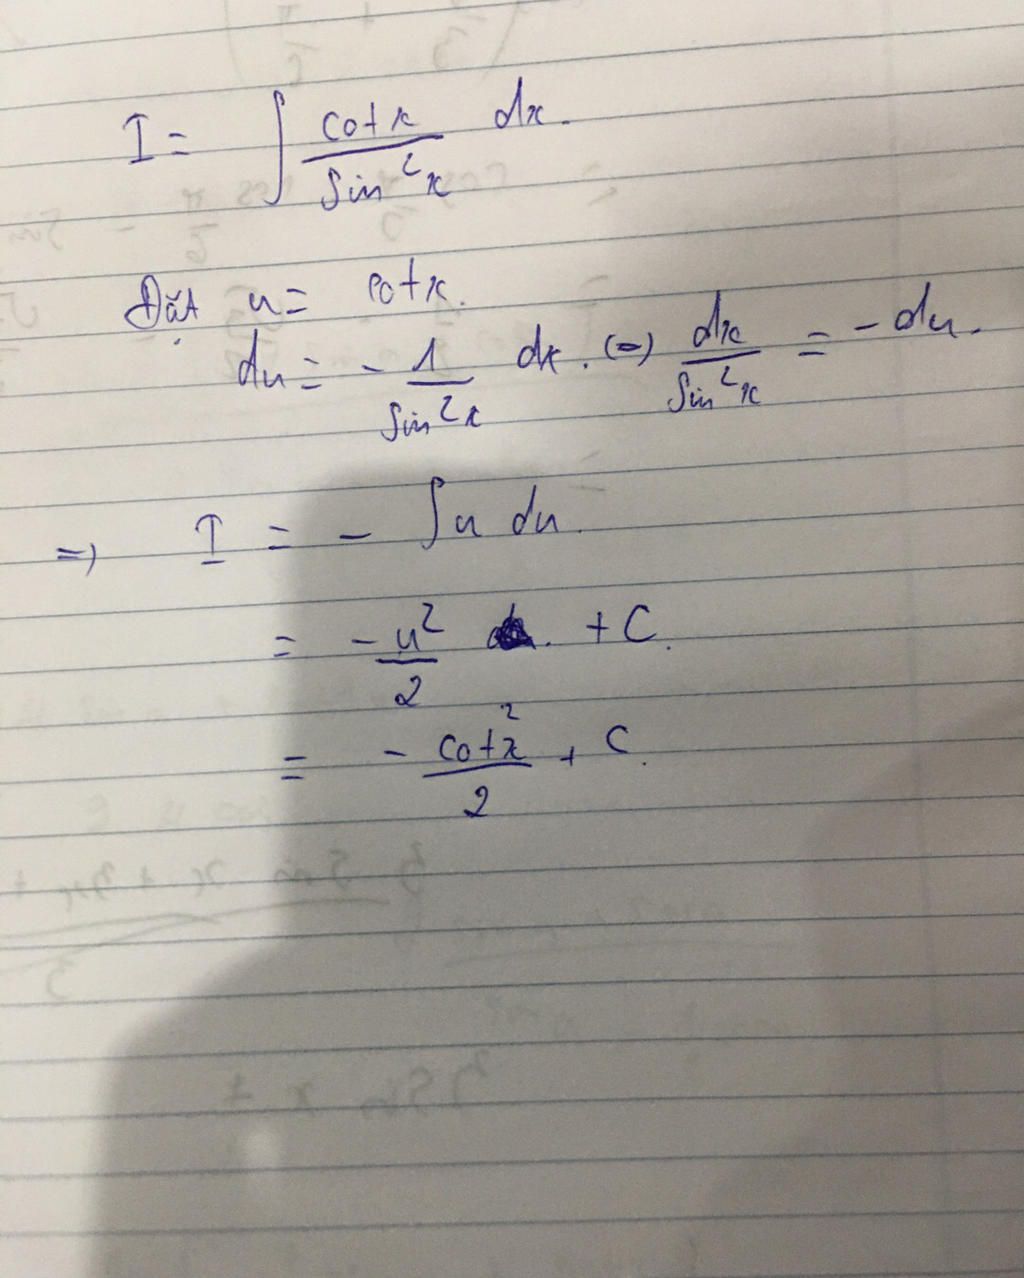 I = ∫ cotx / sin²x dx.
Đặt u = cotx.
du = - 1 / sin²x dx. (=) dx / sin²x = - du.
=) I = - ∫ u du.
= -u² / 2 + C.
= - cotx² / 2 + C.